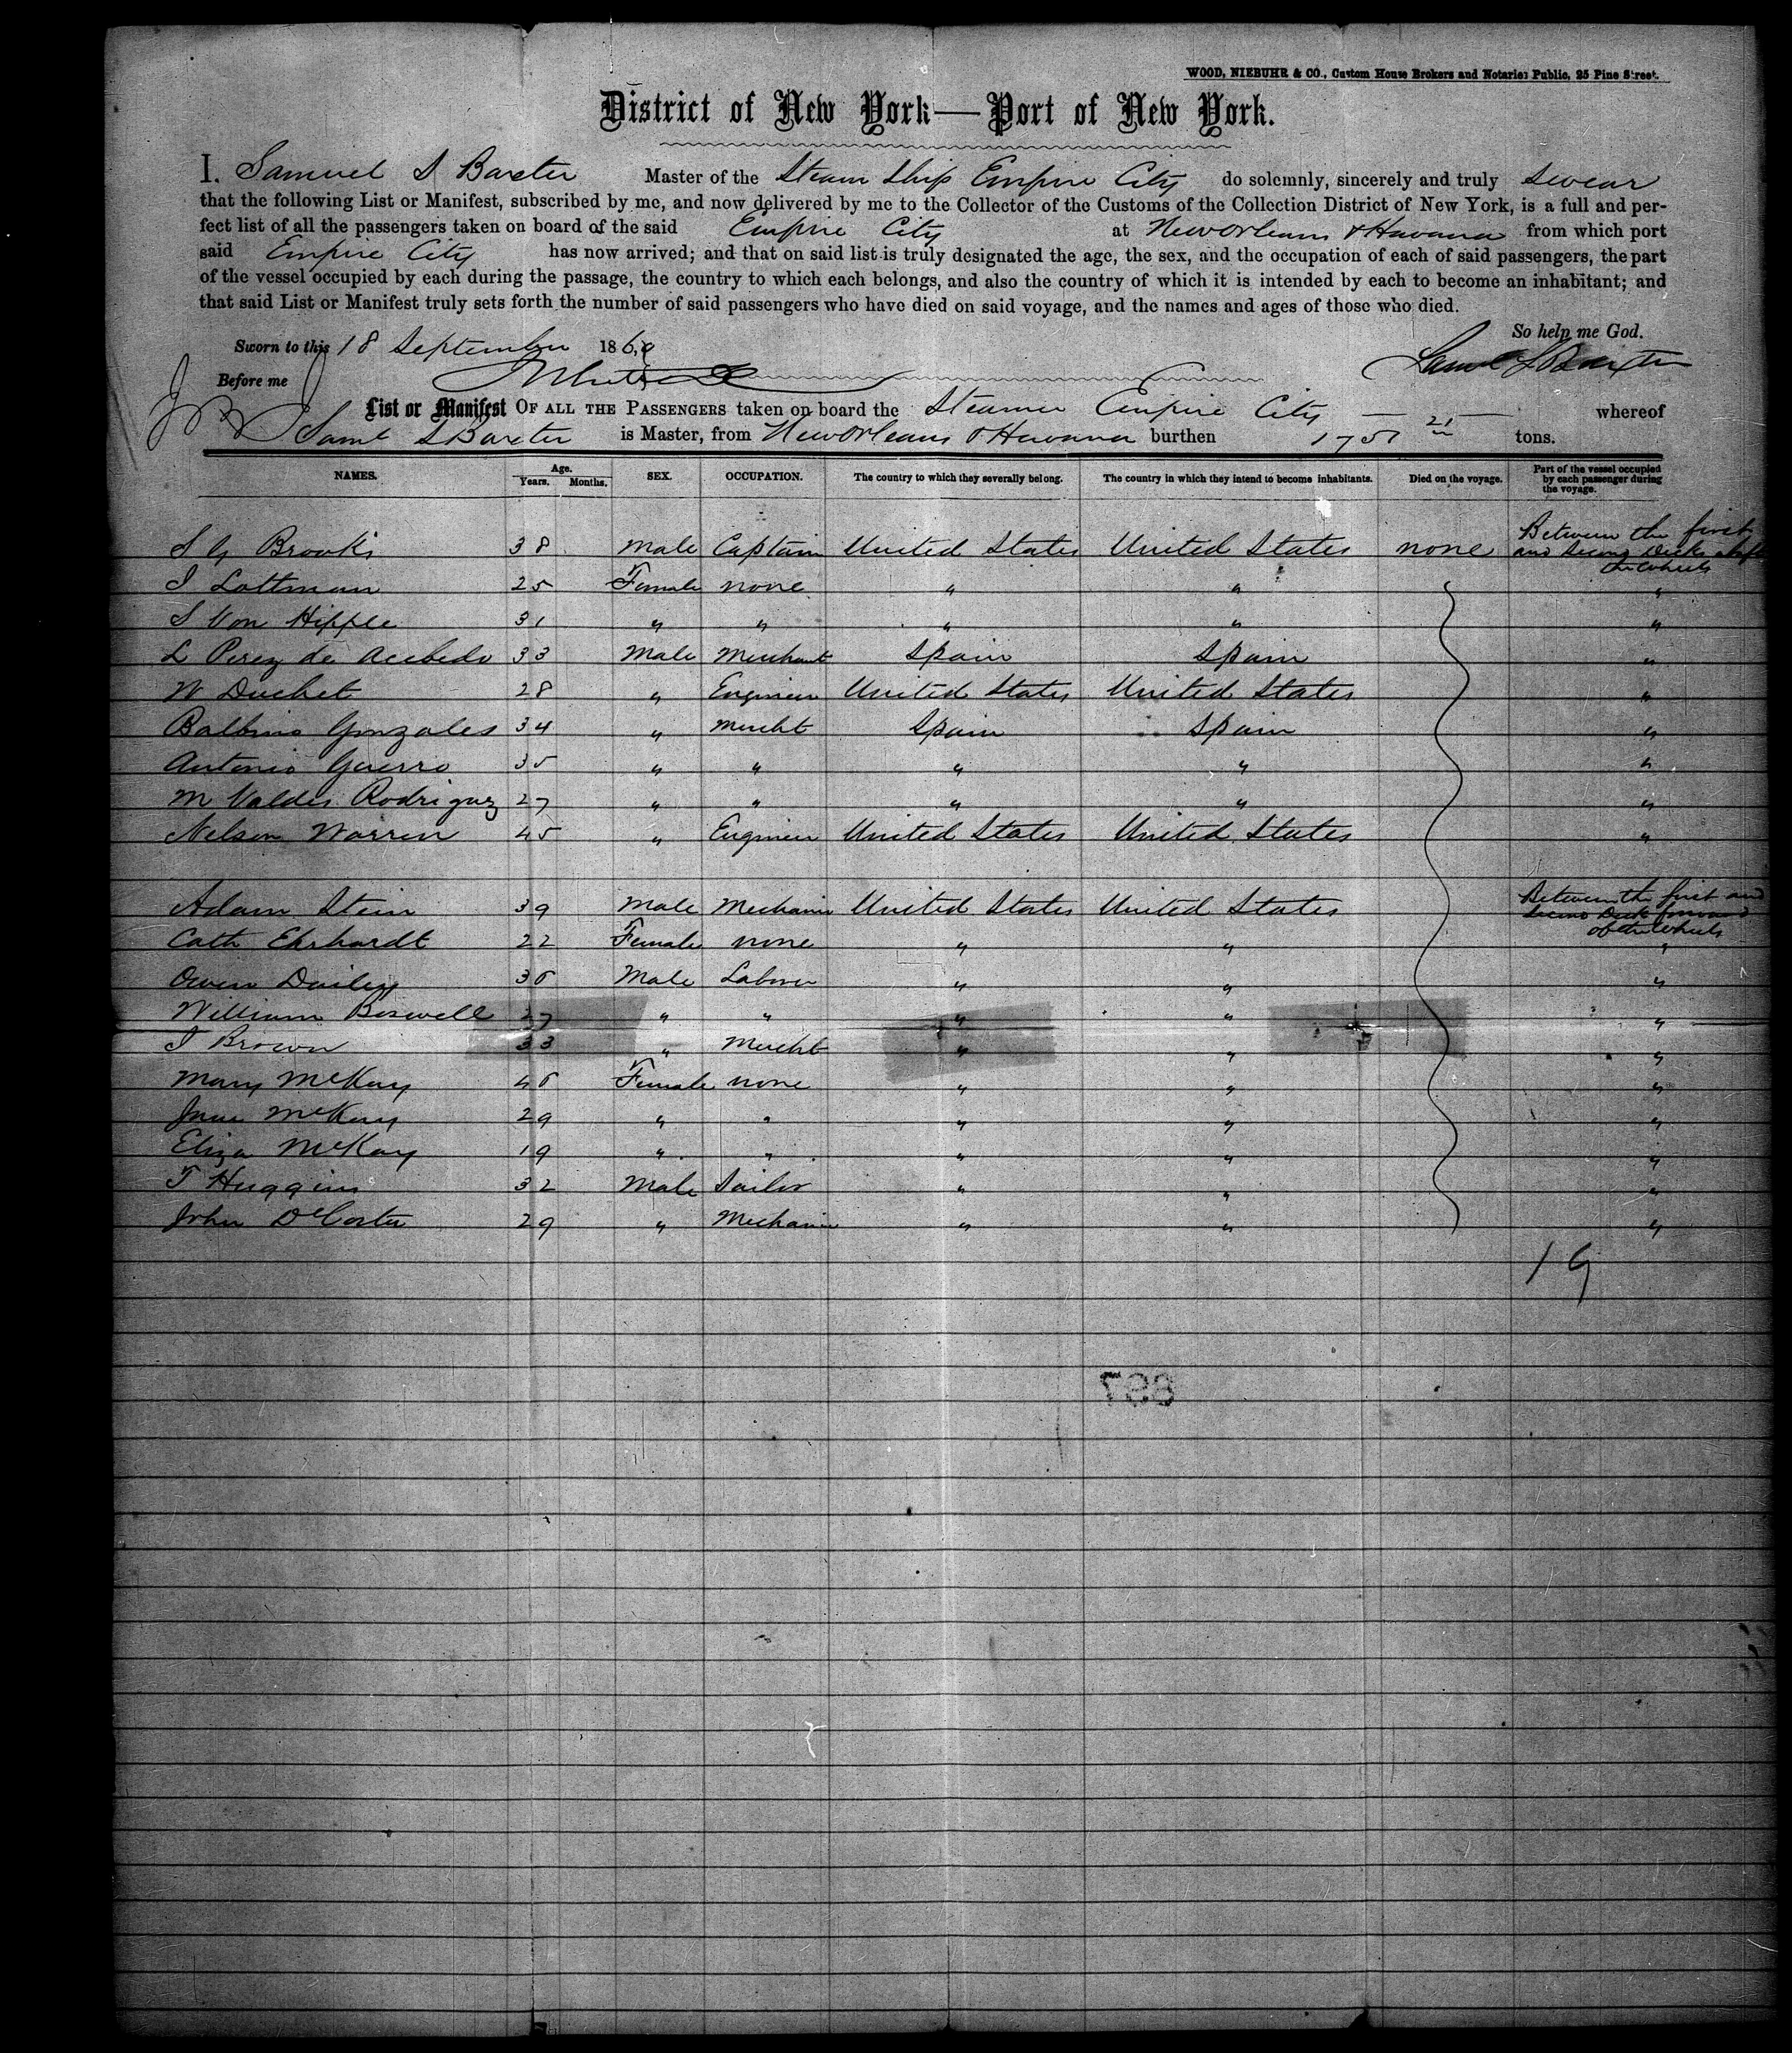 WOOD, NIEBUHR & CO., Custom House Brokers and Notaries Public, 25 Pine Street.
District of New York—Port of New York.
I. Samuel S Baxter Master of the Steam Ship Empire City do solemnly, sincerely and truly swear
that the following List or Manifest, subscribed by me, and now delivered by me to the Collector of the Customs of the Collection District of New York, is a full and per-
fect list of all the passengers taken on board of the said Empire City at New Orleans & Havana from which port
said Empire City has now arrived; and that on said list is truly designated the age, the sex, and the occupation of each of said passengers, the part
of the vessel occupied by each during the passage, the country to which each belongs, and also the country of which it is intended by each to become an inhabitant; and
that said List or Manifest truly sets forth the number of said passengers who have died on said voyage, and the names and ages of those who died.
So help me God.
Sworn to this 18 September 186
Saml S Baxter
Before me
List or Manifest OF ALL THE PASSENGERS taken on board the Steamer Empire City — 21 — whereof
Saml S Baxter is Master, from New Orleans & Havana burthen 1751 tons.
NAMES. Age. Years. Months. SEX. OCCUPATION. The country to which they severally belong. The country in which they intend to become inhabitants. Died on the voyage. Part of the vessel occupied by each passenger during the voyage.
S G Brooks 38 Male Captain United States United States none Between the first and Second Decks abaft the wheels
I Lottman 25 Female none " " "
S Von Hipple 31 " " " " "
L Perez de Acebedo 33 Male Merchant Spain Spain "
W Duchet 28 " Engineer United States United States "
Balbino Gonzales 34 " Mercht Spain Spain "
Antonio Guerro 35 " " " " "
M Valdes Rodriguez 27 " " " " "
Nelson Warren 45 " Engineer United States United States "
Adam Stein 39 Male Mechanic United States United States Between the first and Second Deck forward of the Wheels
Cath Ehrhardt 22 Female none " " "
Owen Dailey 36 Male Laborer " " "
William Boswell 27 " " " " "
I Brown 33 " Mercht " " "
Mary McKay 46 Female none " " "
Jane McKay 29 " " " " "
Eliza McKay 19 " " " " "
T Huggins 32 Male Sailor " " "
John DeCosta 29 " Mechanic " " "
19